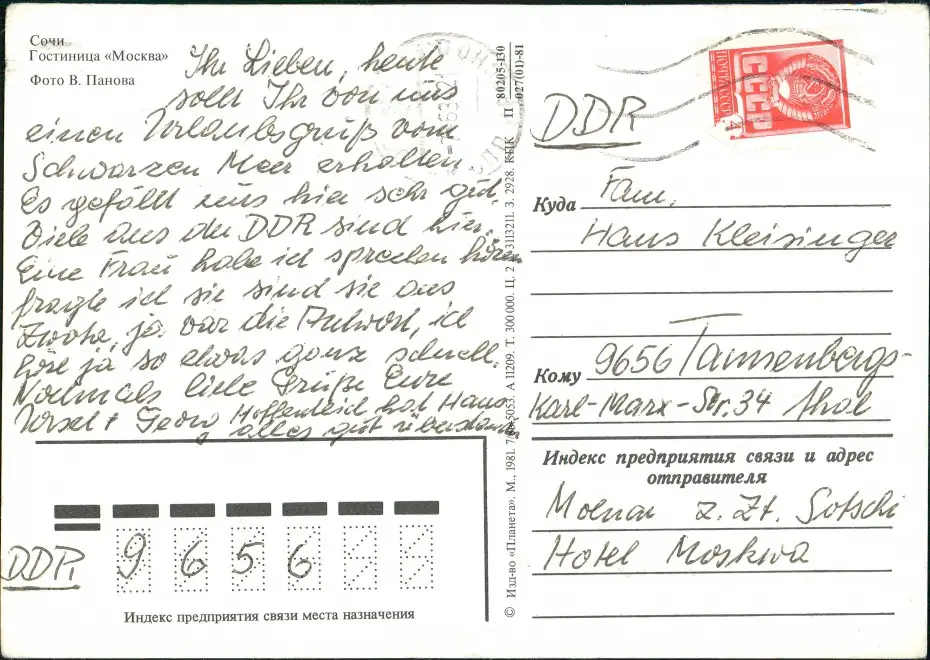 Сочи
Гостиница «Москва»
Фото В. Панова
Ihr Lieben, heute
sollt Ihr von uns
einen Urlaubsgruß vom
Schwarzen Meer erhalten.
Es gefällt uns hier sehr gut.
Viele aus der DDR sind hier.
Eine Frau habe ich sprechen hören
fragte ich sie sind sie aus
Zwota, ja war die Antwort, ich
höre ja so etwas ganz schnell.
Nochmals liebe Grüße Eure
Ursel + Georg Hoffentlich hat Hans
alles gut überstanden.
П 80205-130
027(01)-81
© Изд-во «Планета». М., 1981. А 11209. Т. 300 000. З. 2928. КБК
ПОЧТА СССР
СССР
4
DDR
Куда Fam.
Hans Kleisinger
Кому 9656 Tannenbergs-
Karl-Marx-Str. 34 thal
Индекс предприятия связи и адрес
отправителя
Molnar z. Zt. Sotschi
Hotel Moskwa
DDR, 9656
Индекс предприятия связи места назначения